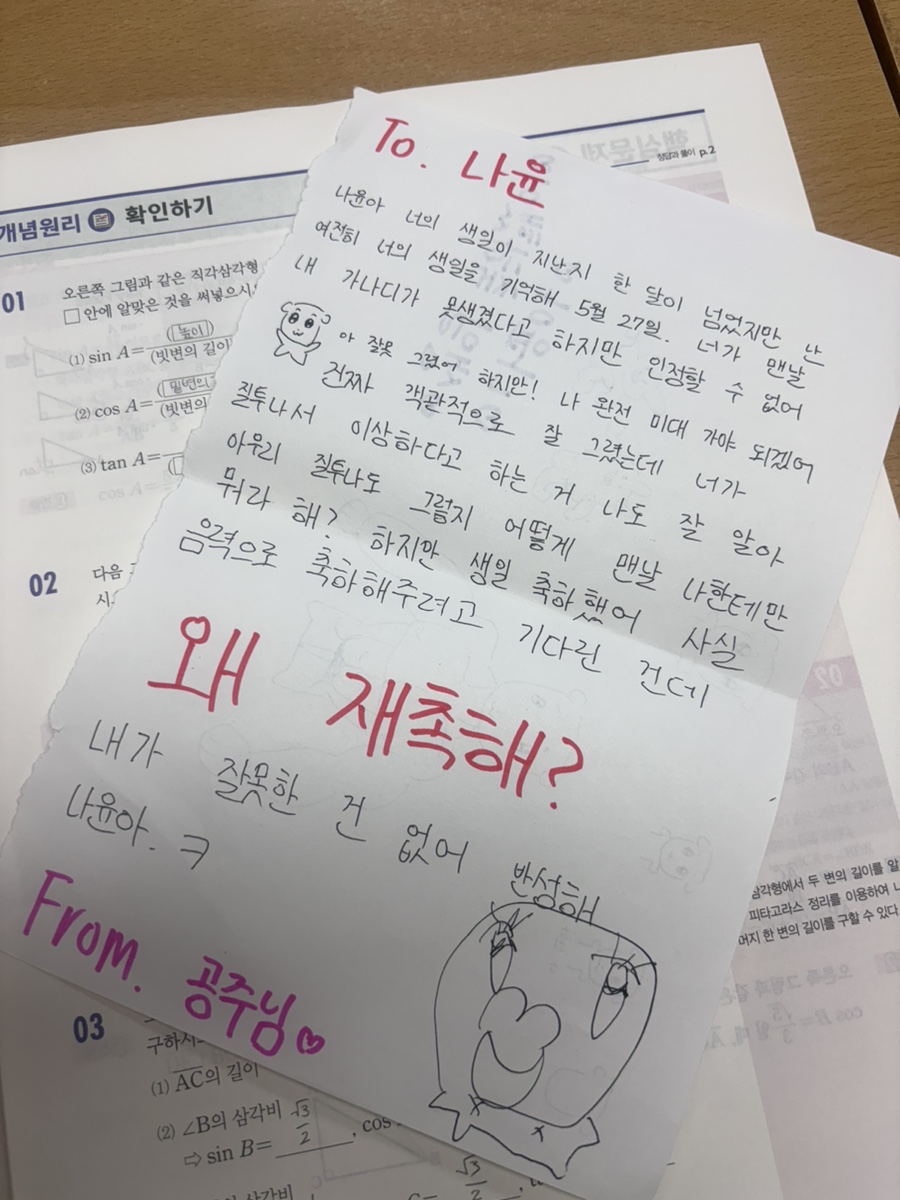 핵심문제
정답과 풀이 p.2
개념원리 확인하기
01 오른쪽 그림과 같은 직각삼각형
□ 안에 알맞은 것을 써넣으시오
(1) sin A = (높이)/(빗변의 길이
(2) cos A = (밑변의/(빗변의
(3) tan A =
02 다음
To. 나윤
나윤아 너의 생일이 지난지 한 달이 넘었지만 난
여전히 너의 생일을 기억해 5월 27일. 너가 맨날
내 가나디가 못생겼다고 하지만 인정할 수 없어
아 잘못 그렸어 하지만! 나 완전 미대 가야 되겠어
진짜 객관적으로 잘 그렸는데 너가
질투나서 이상하다고 하는 거 나도 잘 알아
아무리 질투나도 그렇지 어떻게 맨날 나한테만
뭐라 해? 하지만 생일 축하했어 사실
음력으로 축하해주려고 기다린 건데
왜 재촉해?
내가 잘못한 건 없어
나윤아. ㅋ
반성해
From. 공주님♡
삼각형에서 두 변의 길이를 알
피타고라스 정리를 이용하여 나
머지 한 변의 길이를 구할 수 있다.
03
구하시
(1) AC의 길이
(2) ∠B의 삼각비
⇨ sin B = √3/2, cos
√3/2
의 삼각비